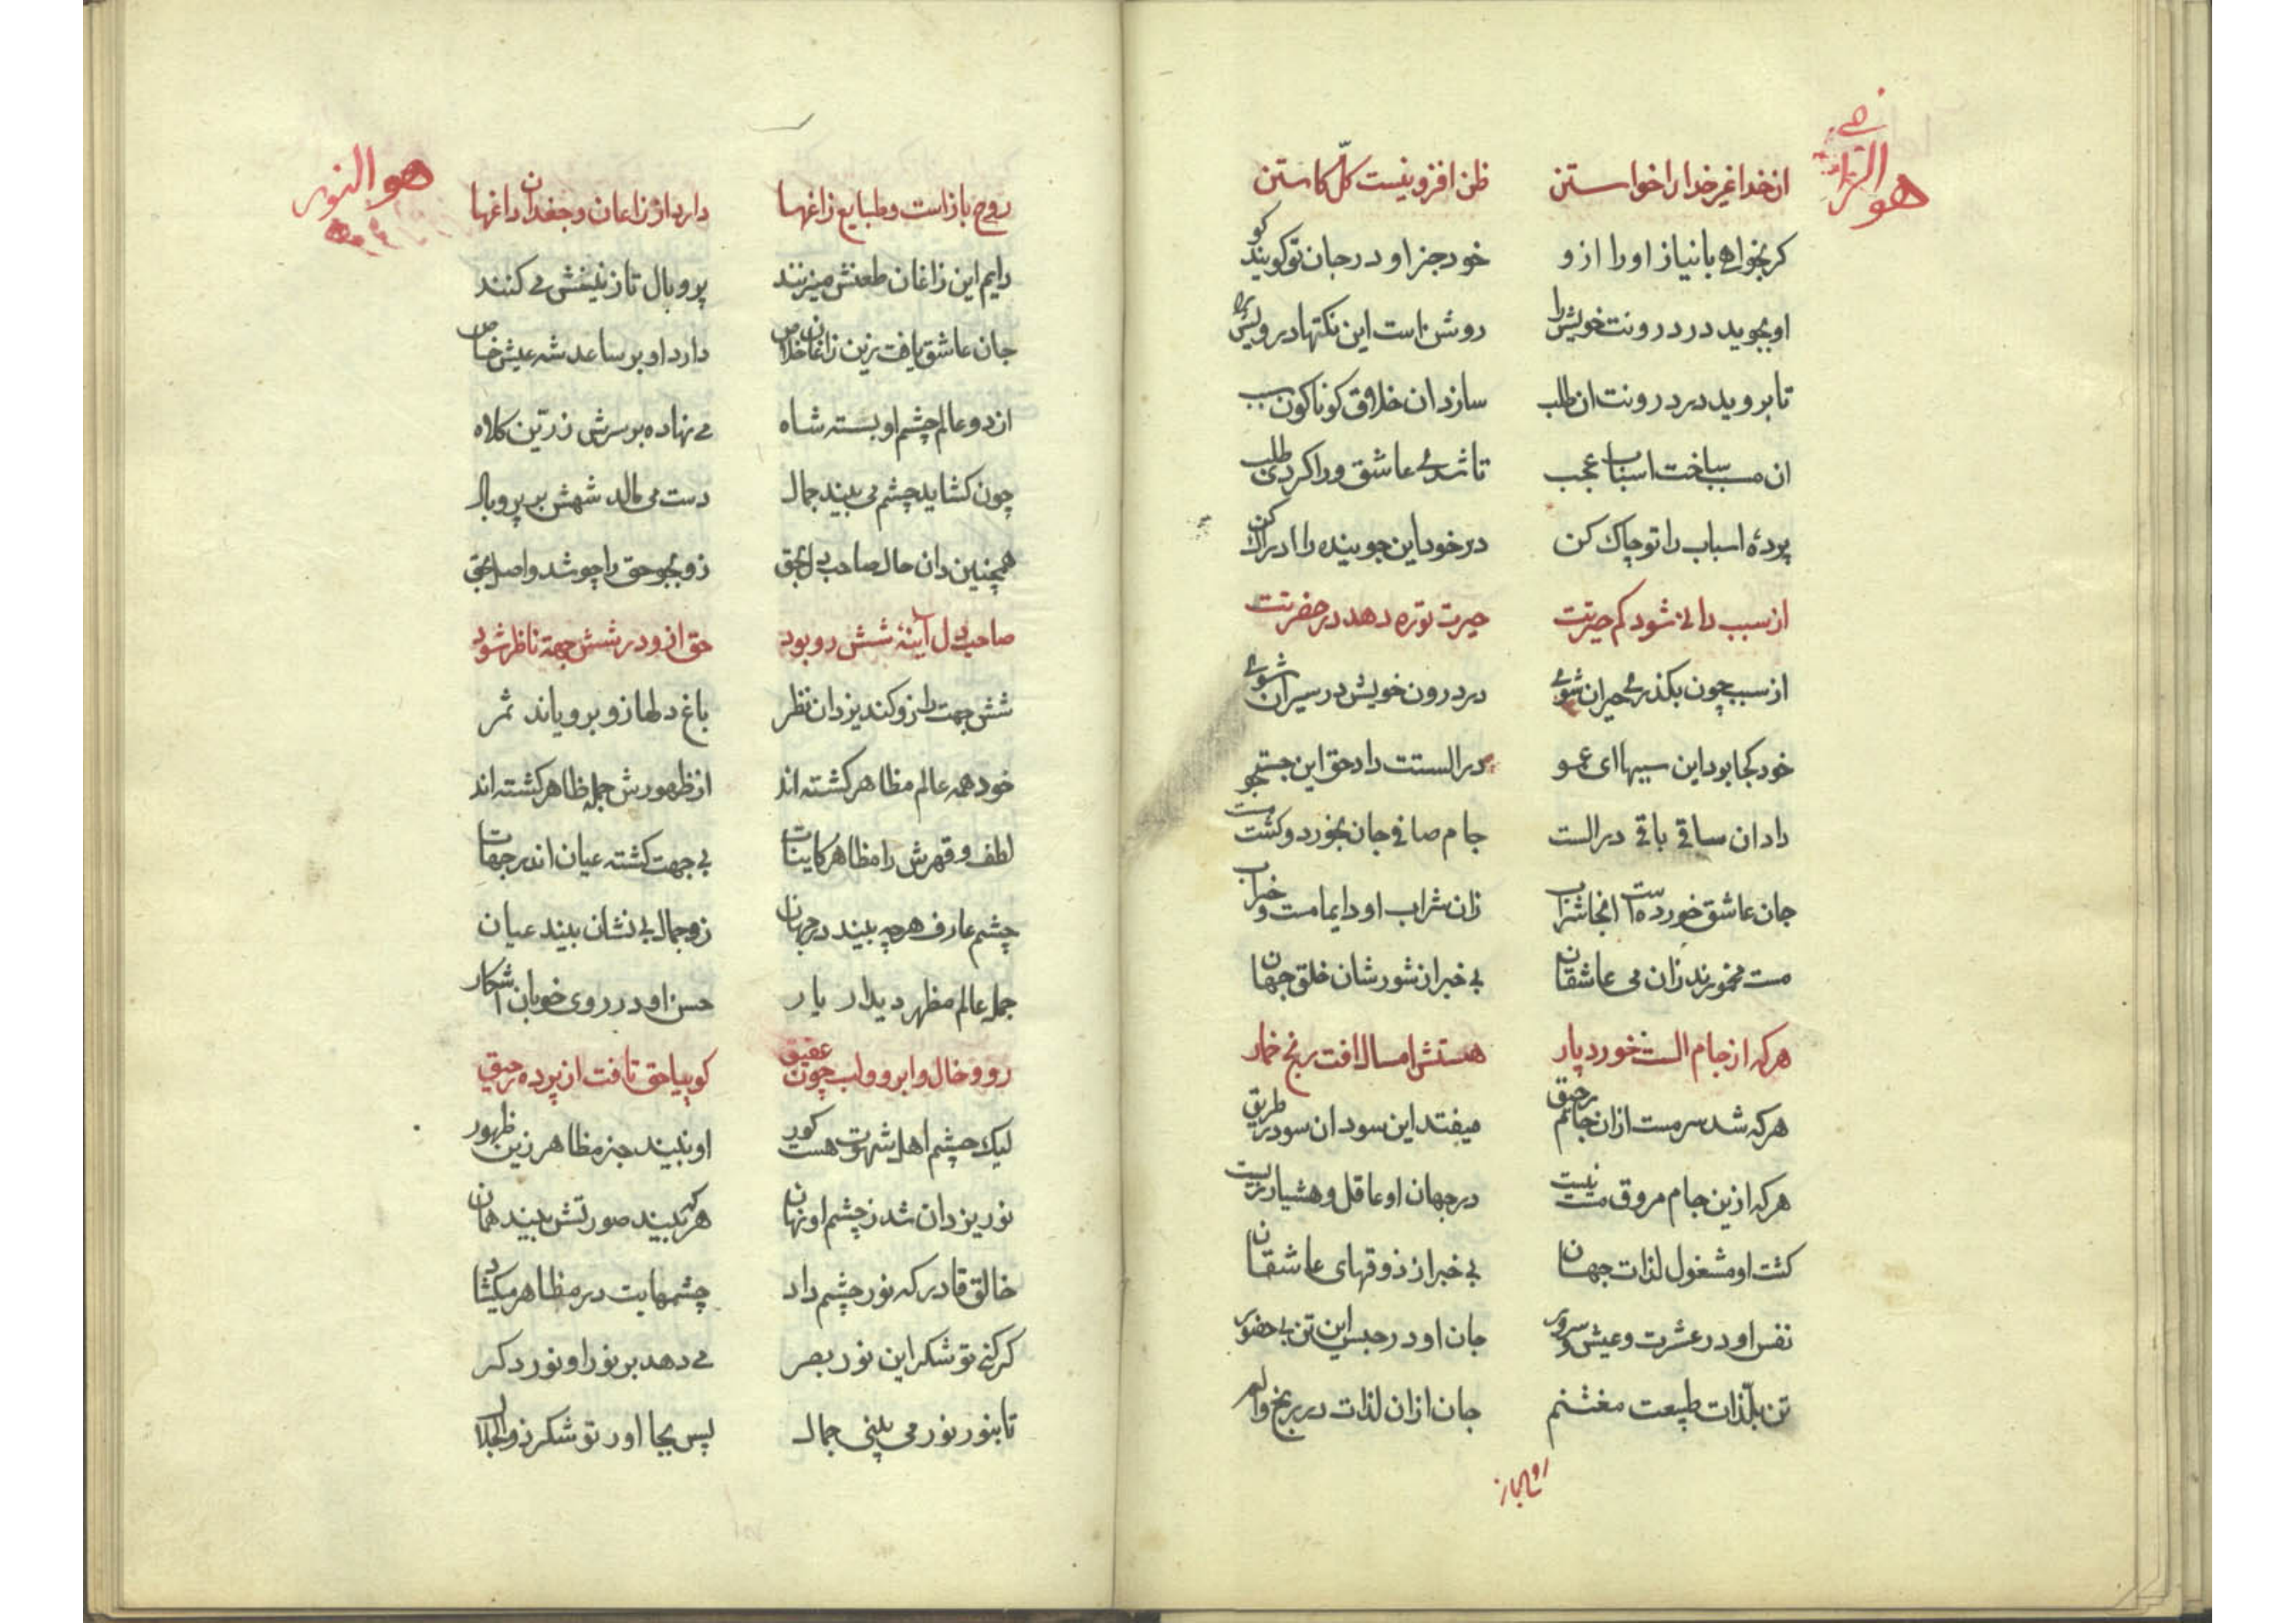 هو الرازق
از خدا غیر خدا را خواستن ظن افزونیست کلّ کاستن
کر بخواهی بانیاز او را ازو خود جز او در جان تو کویند کو
او بجوید در درونت خویش را روشن است این نکتها درویش را
تا بروید در درونت ان طلب سازد ان خلاق کوناکون سبب
ان مسبب ساخت اسباب عجب تا شدی عاشق ورا کردی طلب
پردهٔ اسباب را تو چاک کن در خود این جوینده را ادراک کن
از سبب دانی شود کم حیرتت حیرت تو ره دهد در حضرتت
از سبب چون بکذری حیران شوی در درون خویش در سیران شوی
خود کجا بود این سببها ای عمو در الستت داد حق این جست جو
داد ان ساقی باقی در الست جام صافی جان بخورد و کشت مست
جان عاشق خورده است انجا شراب زان شراب او دایما مست و خراب
مست مخمورند زان می عاشقان بی خبر از شورشان خلق جهان
هر که از جام الست خورد پار هستش امسال افت رنج خمار
هر که شد سرمست ازان جام رحیق میفتد این سو و ان سو در طریق
هر که ازین جام مروق مست نیست در جهان او عاقل و هشیار زیست
کشت او مشغول لذات جهان بی خبر از ذوقهای عاشقان
نفس او در عشرت و عیش و سرور جان او در حبس این تن بی حضور
تن بلذّات طبیعت مغتنم جان ازان لذات در رنج و الم
روح باز
هو النور
روح باز است و طبایع زاغها دارد از زاغان و جغدان داغها
دایم این زاغان طعنش میزنند پر و بال نازنینش می کنند
جان عاشق یافت زین زاغان خلاص دارد او بر ساعد شه عیش خاص
از دو عالم چشم او بسته شاه می نهاده بر سرش زرّین کلاه
چون کشاید چشم می بیند جمال دست می مالد شهش بر پر و بال
همچنین دان حال صاحب دل بحق زو بجو حق را چو شد واصل بحق
صاحب دل آینهٔ شش رو بود حق ازو در شش جهة ناظر شود
شش جهت را زو کند یزدان نظر باغ دلها زو برویاند ثمر
خود همه عالم مظاهر کشته اند از ظهورش جمله ظاهر کشته اند
لطف و قهرش را مظاهر کاینات بی جهت کشته عیان اندر جهات
چشم عارف هر چه بیند در جهان زو جمال بی نشان بیند عیان
جمله عالم مظهر دیدار یار حسن او در روی خوبان اشکار
رو و خال و ابرو و لب چون عقیق کوییا حق تافت از پرده رقیق
لیک چشم اهل شهوت هست کور او نبیند جز مظاهر زین ظهور
نور یزدان شد ز چشم او نهان هر که بیند صورتش بیند همان
خالق قادر که نور چشم داد چشمهایت در مظاهر میکشاد
کر کنی تو شکر این نور بصر می دهد بر نور او نور دکر
تا بنور نور می بینی جمال پس بجا اور تو شکر ذو الجلال